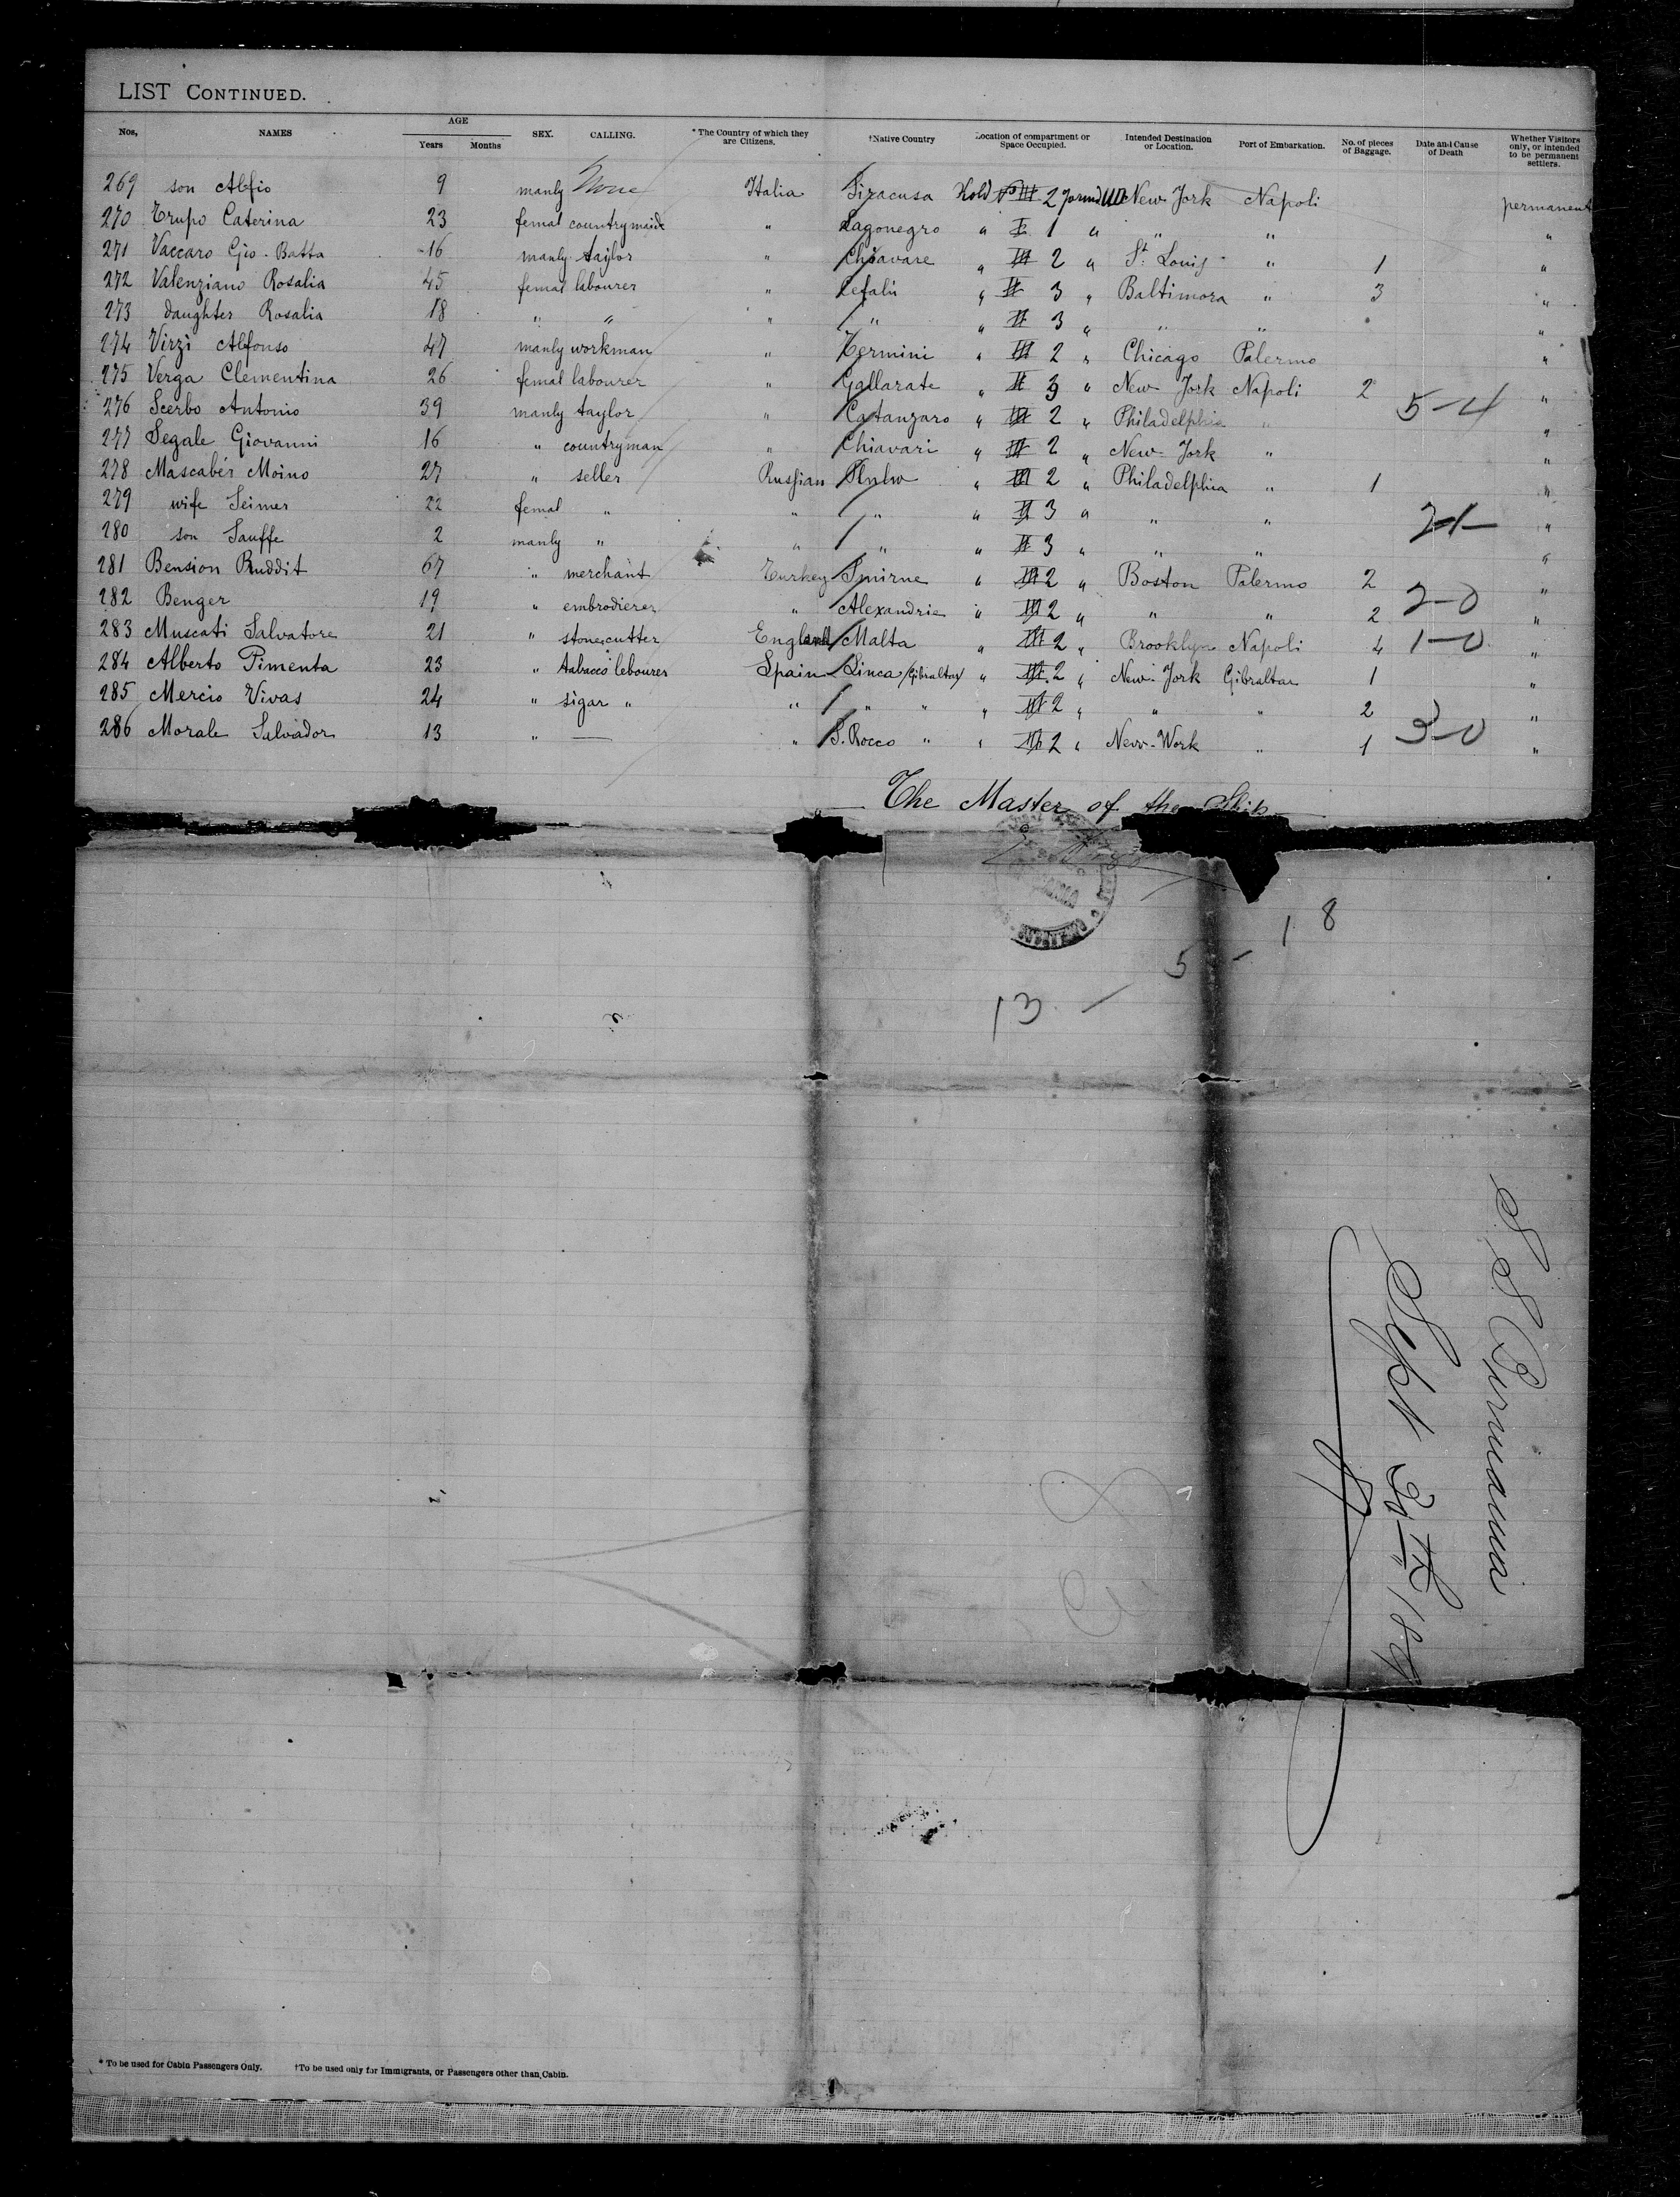 LIST CONTINUED.
Nos, NAMES AGE Years Months SEX. CALLING. * The Country of which they are Citizens. †Native Country Location of compartment or Space Occupied. Intended Destination or Location. Port of Embarkation. No. of pieces of Baggage. Date and Cause of Death Whether Visitors only, or intended to be permanent settlers.
269 son Alfio 9 manly None Italia Siracusa Hold No III 2 New York Napoli permanent
270 Trupo Caterina 23 femal countrymaid " Lagonegro " I 1 " " " "
271 Vaccaro Gio-Batta 16 manly taylor " Chiavare " III 2 " St. Louis " 1 "
272 Valenziano Rosalia 45 femal labourer " Cefalù " II 3 " Baltimora " 3 "
273 daughter Rosalia 18 " " " " " II 3 " " " "
274 Virzì Alfonso 47 manly workman " Termini " III 2 " Chicago Palermo "
275 Verga Clementina 26 femal labourer " Gallarate " II 3 " New York Napoli 2 "
276 Scerbo Antonio 39 manly taylor " Catanzaro " III 2 " Philadelphia " 5-4 "
277 Segale Giovanni 16 " countryman " Chiavari " III 2 " New York " "
278 Mascabér Moino 27 " seller Russian " III 2 " Philadelphia " 1 "
279 wife Seimer 22 femal " " " " II 3 " " " 2-1- "
280 son Sauffe 2 manly " " " " II 3 " " " "
281 Bension Ruddit 67 " merchant Turkey Smirne " III 2 " Boston Palermo 2 "
282 Benger 19 " embrodierer " Alexandrie " III 2 " " " 2 2-0 "
283 Muscati Salvatore 21 " stonecutter England Malta " III 2 " Brooklyn Napoli 4 1-0 "
284 Alberto Pimenta 23 " tabacco labourer Spain Linea (Gibraltar) " III 2 " New-York Gibraltar 1 "
285 Mercio Vivas 24 " sigar " " " " " III 2 " " " 2 "
286 Morale Salvador 13 " — " S. Rocco " " III 2 " New-Work " 1 3-0 "
The Master of the Ship
13 - 5 - 1 8
S S Burmania
Sept
* To be used for Cabin Passengers Only. †To be used only for Immigrants, or Passengers other than Cabin.